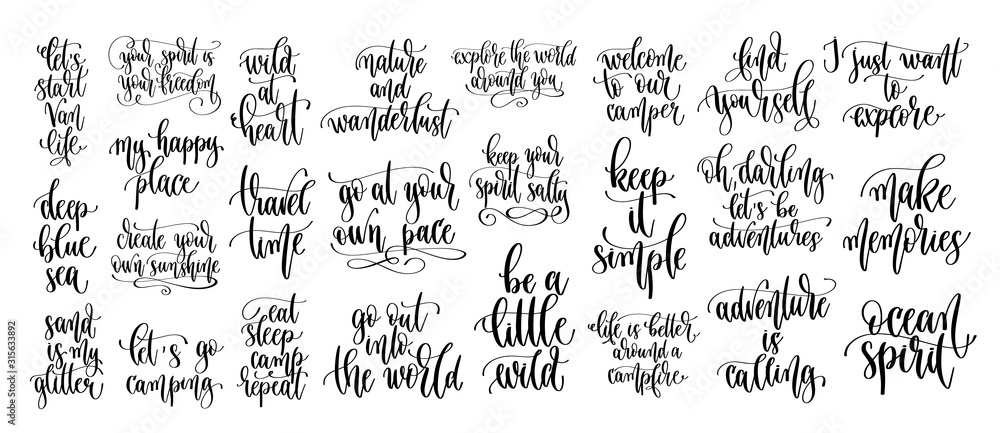 let's
start
Van
life
deep
blue
sea
sand
is my
glitter
your spirit is
your freedom
my happy
place
create your
own sunshine
let's go
camping
wild
at
heart
travel
time
eat
sleep
camp
repeat
nature
and
wanderlust
go at your
own pace
go out
into
the world
explore the world
around you
keep your
spirit salty
be a
little
wild
welcome
to our
camper
keep
it
simple
life is better
around a
campfire
find
yourself
oh, darling
let's be
adventures
adventure
is
calling
I just want
to
explore
make
memories
ocean
spirit
Adobe Stock | #315633892